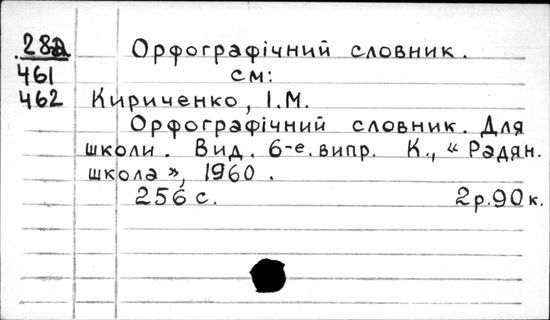 28а Орфографічний словник.
461 см:
462 Кириченко, І.М.
Орфографічний словник. Для
школи. Вид. 6-е. випр. К., „ Радян.
школа ”, 1960.
256 с. 2р.90к.